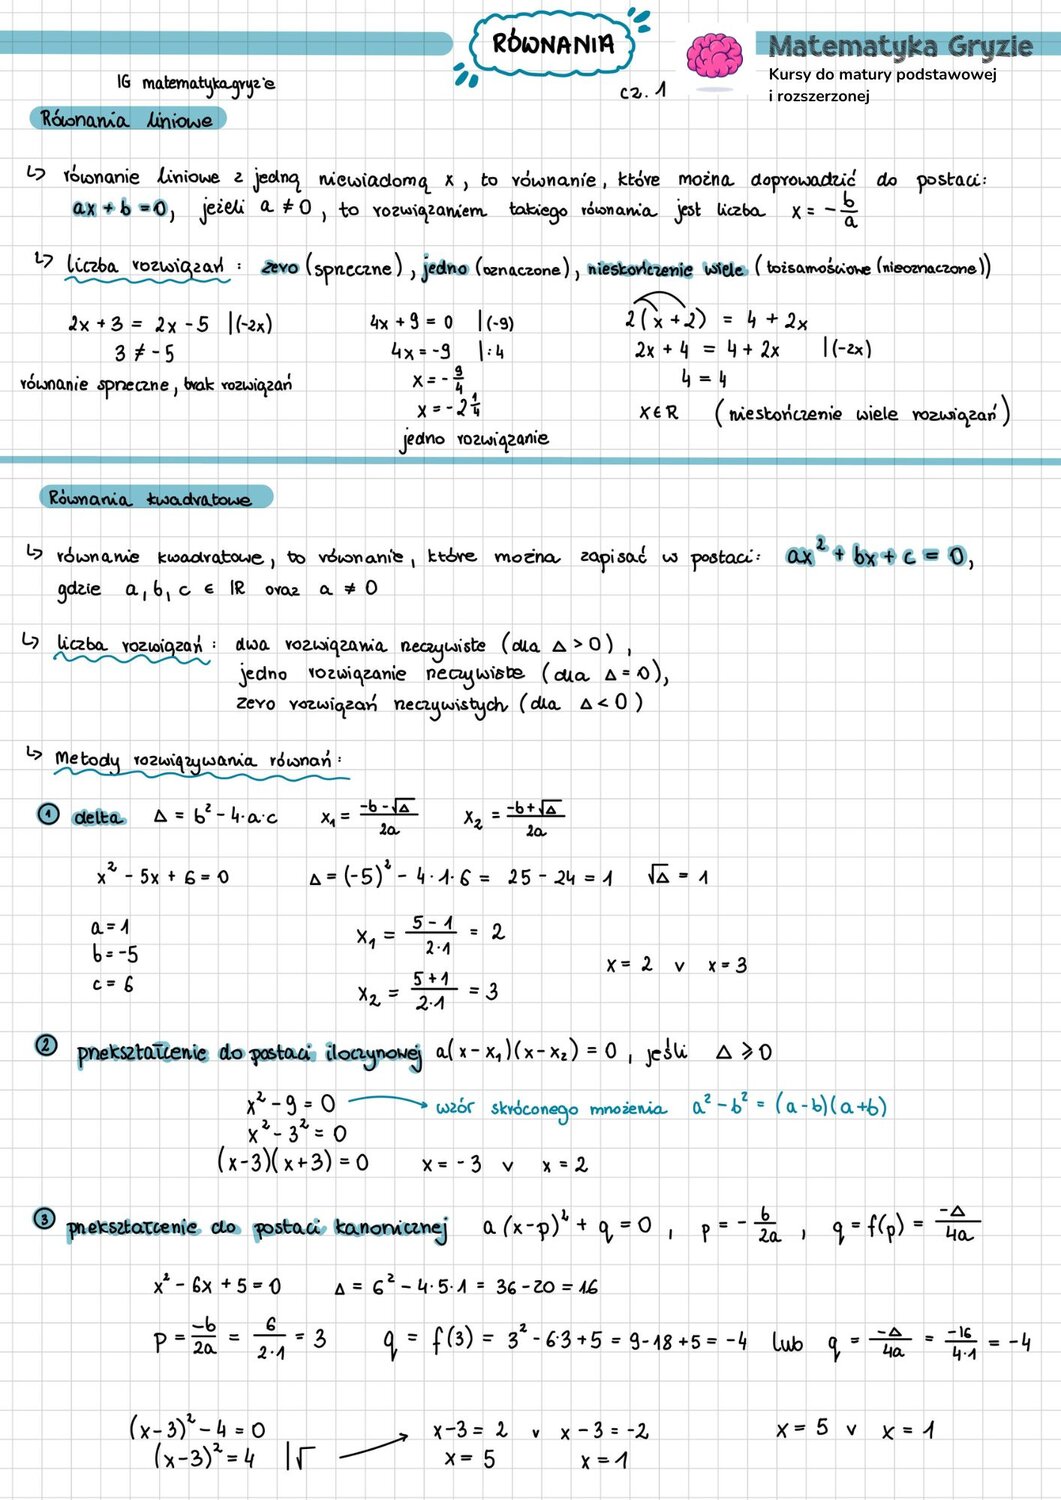 RÓWNANIA
cz. 1
Matematyka Gryzie
Kursy do matury podstawowej
i rozszerzonej
IG matematykagryzie
Równania liniowe
↳ równanie liniowe z jedną niewiadomą x, to równanie, które można doprowadzić do postaci:
ax + b = 0, jeżeli a ≠ 0, to rozwiązaniem takiego równania jest liczba x = -b/a
↳ liczba rozwiązań: zero (sprzeczne), jedno (oznaczone), nieskończenie wiele (tożsamościowe (nieoznaczone))
2x + 3 = 2x - 5 |(-2x)
3 ≠ -5
równanie sprzeczne, brak rozwiązań
4x + 9 = 0 |(-9)
4x = -9 |:4
x = -9/4
x = -2 1/4
jedno rozwiązanie
2(x+2) = 4 + 2x
2x + 4 = 4 + 2x |(-2x)
4 = 4
x∈R (nieskończenie wiele rozwiązań)
Równania kwadratowe
↳ równanie kwadratowe, to równanie, które można zapisać w postaci: ax² + bx + c = 0,
gdzie a, b, c ∈ ℝ oraz a ≠ 0
↳ liczba rozwiązań: dwa rozwiązania rzeczywiste (dla Δ > 0),
jedno rozwiązanie rzeczywiste (dla Δ = 0),
zero rozwiązań rzeczywistych (dla Δ < 0)
↳ Metody rozwiązywania równań:
① delta Δ = b² - 4·a·c x₁ = (-b-√Δ)/2a x₂ = (-b+√Δ)/2a
x² - 5x + 6 = 0 Δ = (-5)² - 4·1·6 = 25 - 24 = 1 √Δ = 1
a = 1
b = -5
c = 6
x₁ = (5-1)/(2·1) = 2
x₂ = (5+1)/(2·1) = 3
x = 2 v x = 3
② przekształcenie do postaci iloczynowej a(x-x₁)(x-x₂) = 0, jeśli Δ ⩾ 0
x² - 9 = 0 → wzór skróconego mnożenia a² - b² = (a-b)(a+b)
x² - 3² = 0
(x-3)(x+3) = 0 x = -3 v x = 2
③ przekształcenie do postaci kanonicznej a(x-p)² + q = 0, p = -b/2a, q = f(p) = -Δ/4a
x² - 6x + 5 = 0 Δ = 6² - 4·5·1 = 36 - 20 = 16
p = -b/2a = 6/(2·1) = 3 q = f(3) = 3² - 6·3 + 5 = 9 - 18 + 5 = -4 lub q = -Δ/4a = -16/(4·1) = -4
(x-3)² - 4 = 0
(x-3)² = 4 |√
x-3 = 2 v x-3 = -2
x = 5 x = 1
x = 5 v x = 1